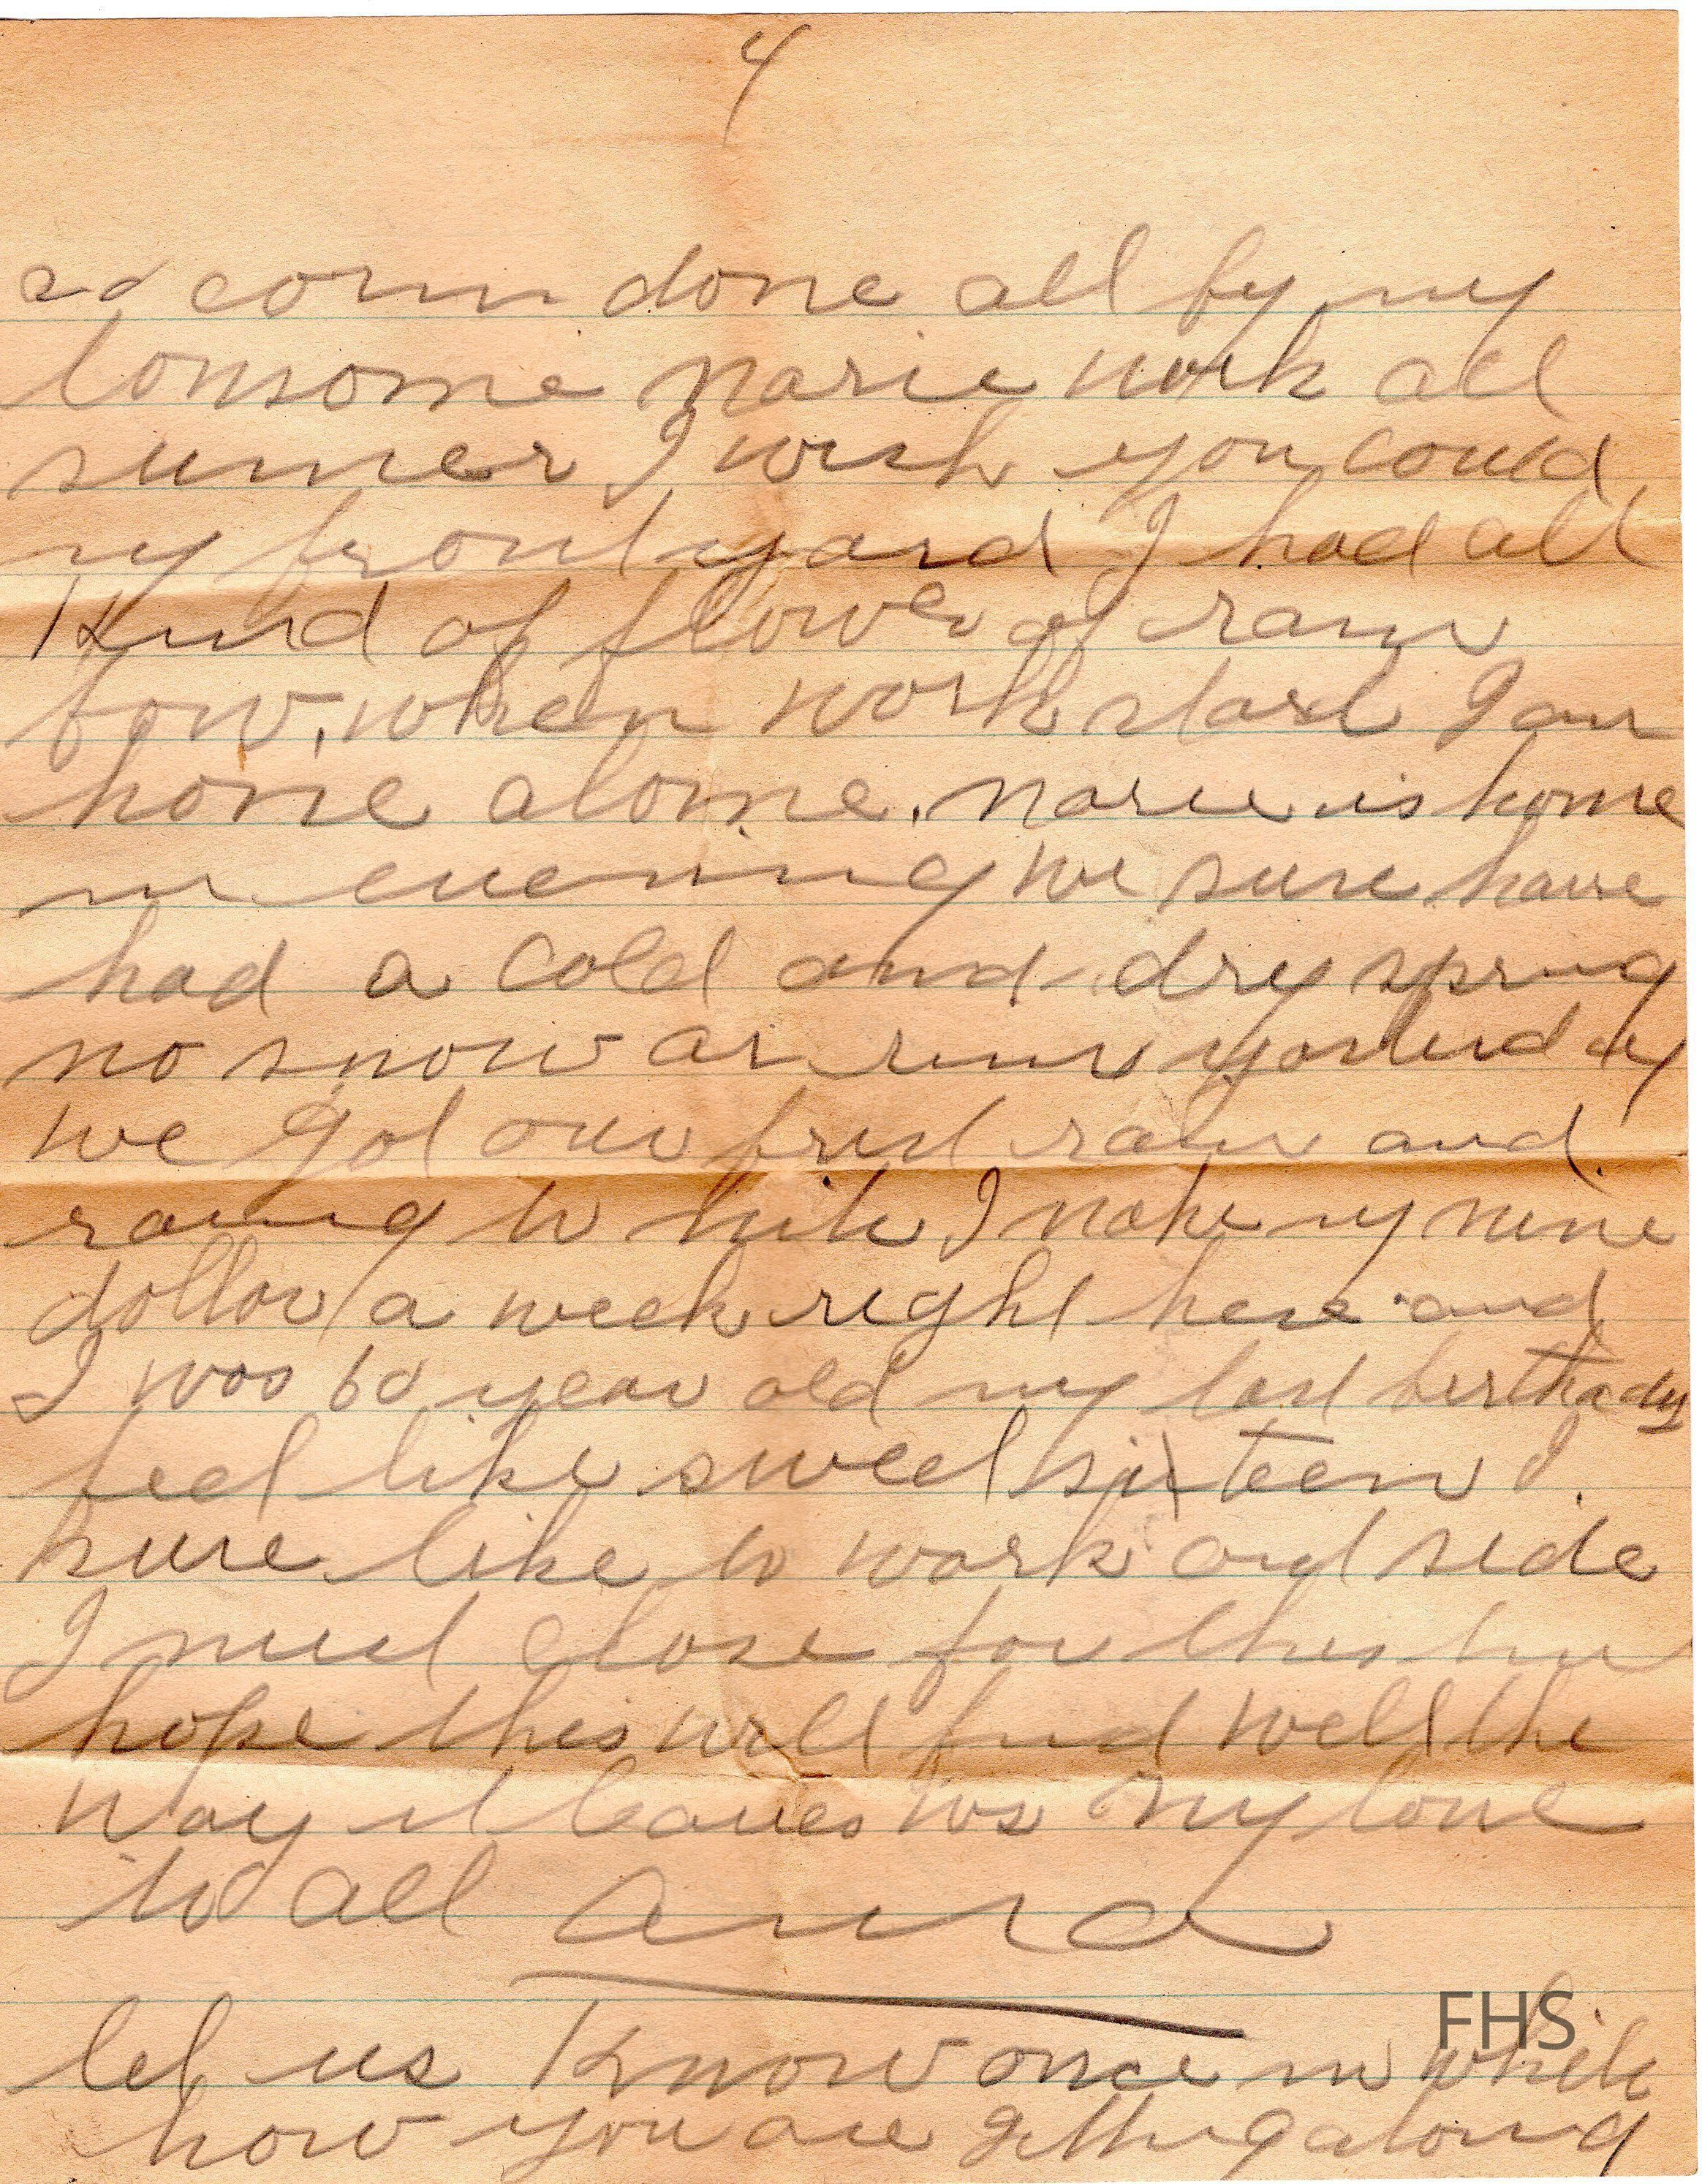 4
corn done all by my
lonsome Marie work all
sumer I wish you could
my front yard I had all
Kind of flower of rain
bow, when work start I am
home alone. Marie is home
in evening we sure have
had a cold and dry spring
no snow ar rain yesterday
we got our first rain and
raing to I make my nine
dollar a week right here and
I was 60 year old my last birthaday
feel like sweet sixteen I
sure like to work out side
I must close for this time
hope this will find well the
way it leaves us My love
to all Anna
let us Know once in while
how you are getting along
FHS